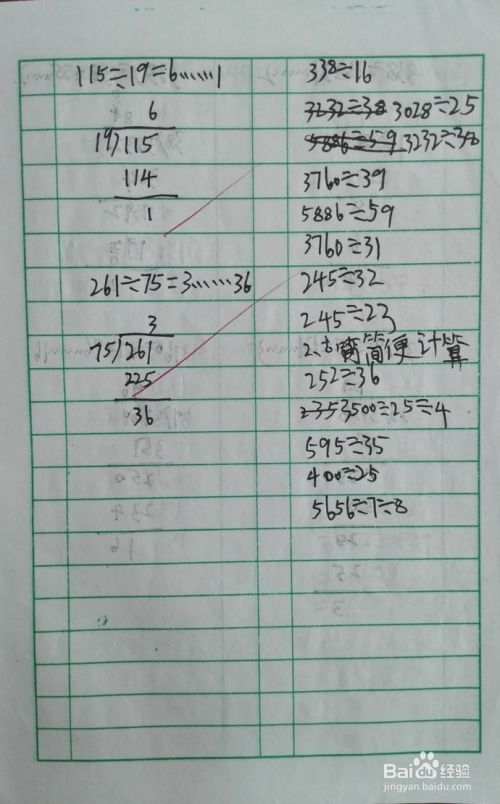 115÷19=6……1
6
19)115
114
1
261÷75=3……36
3
75)261
225
36
338÷16
3232÷38 3028÷25
5886÷59 3232÷38
3760÷39
5886÷59
3760÷31
245÷32
245÷23
2、简便计算
252÷36
3500÷25÷4
595÷35
400÷25
5656÷7÷8
Baidu经验
jingyan.baidu.com